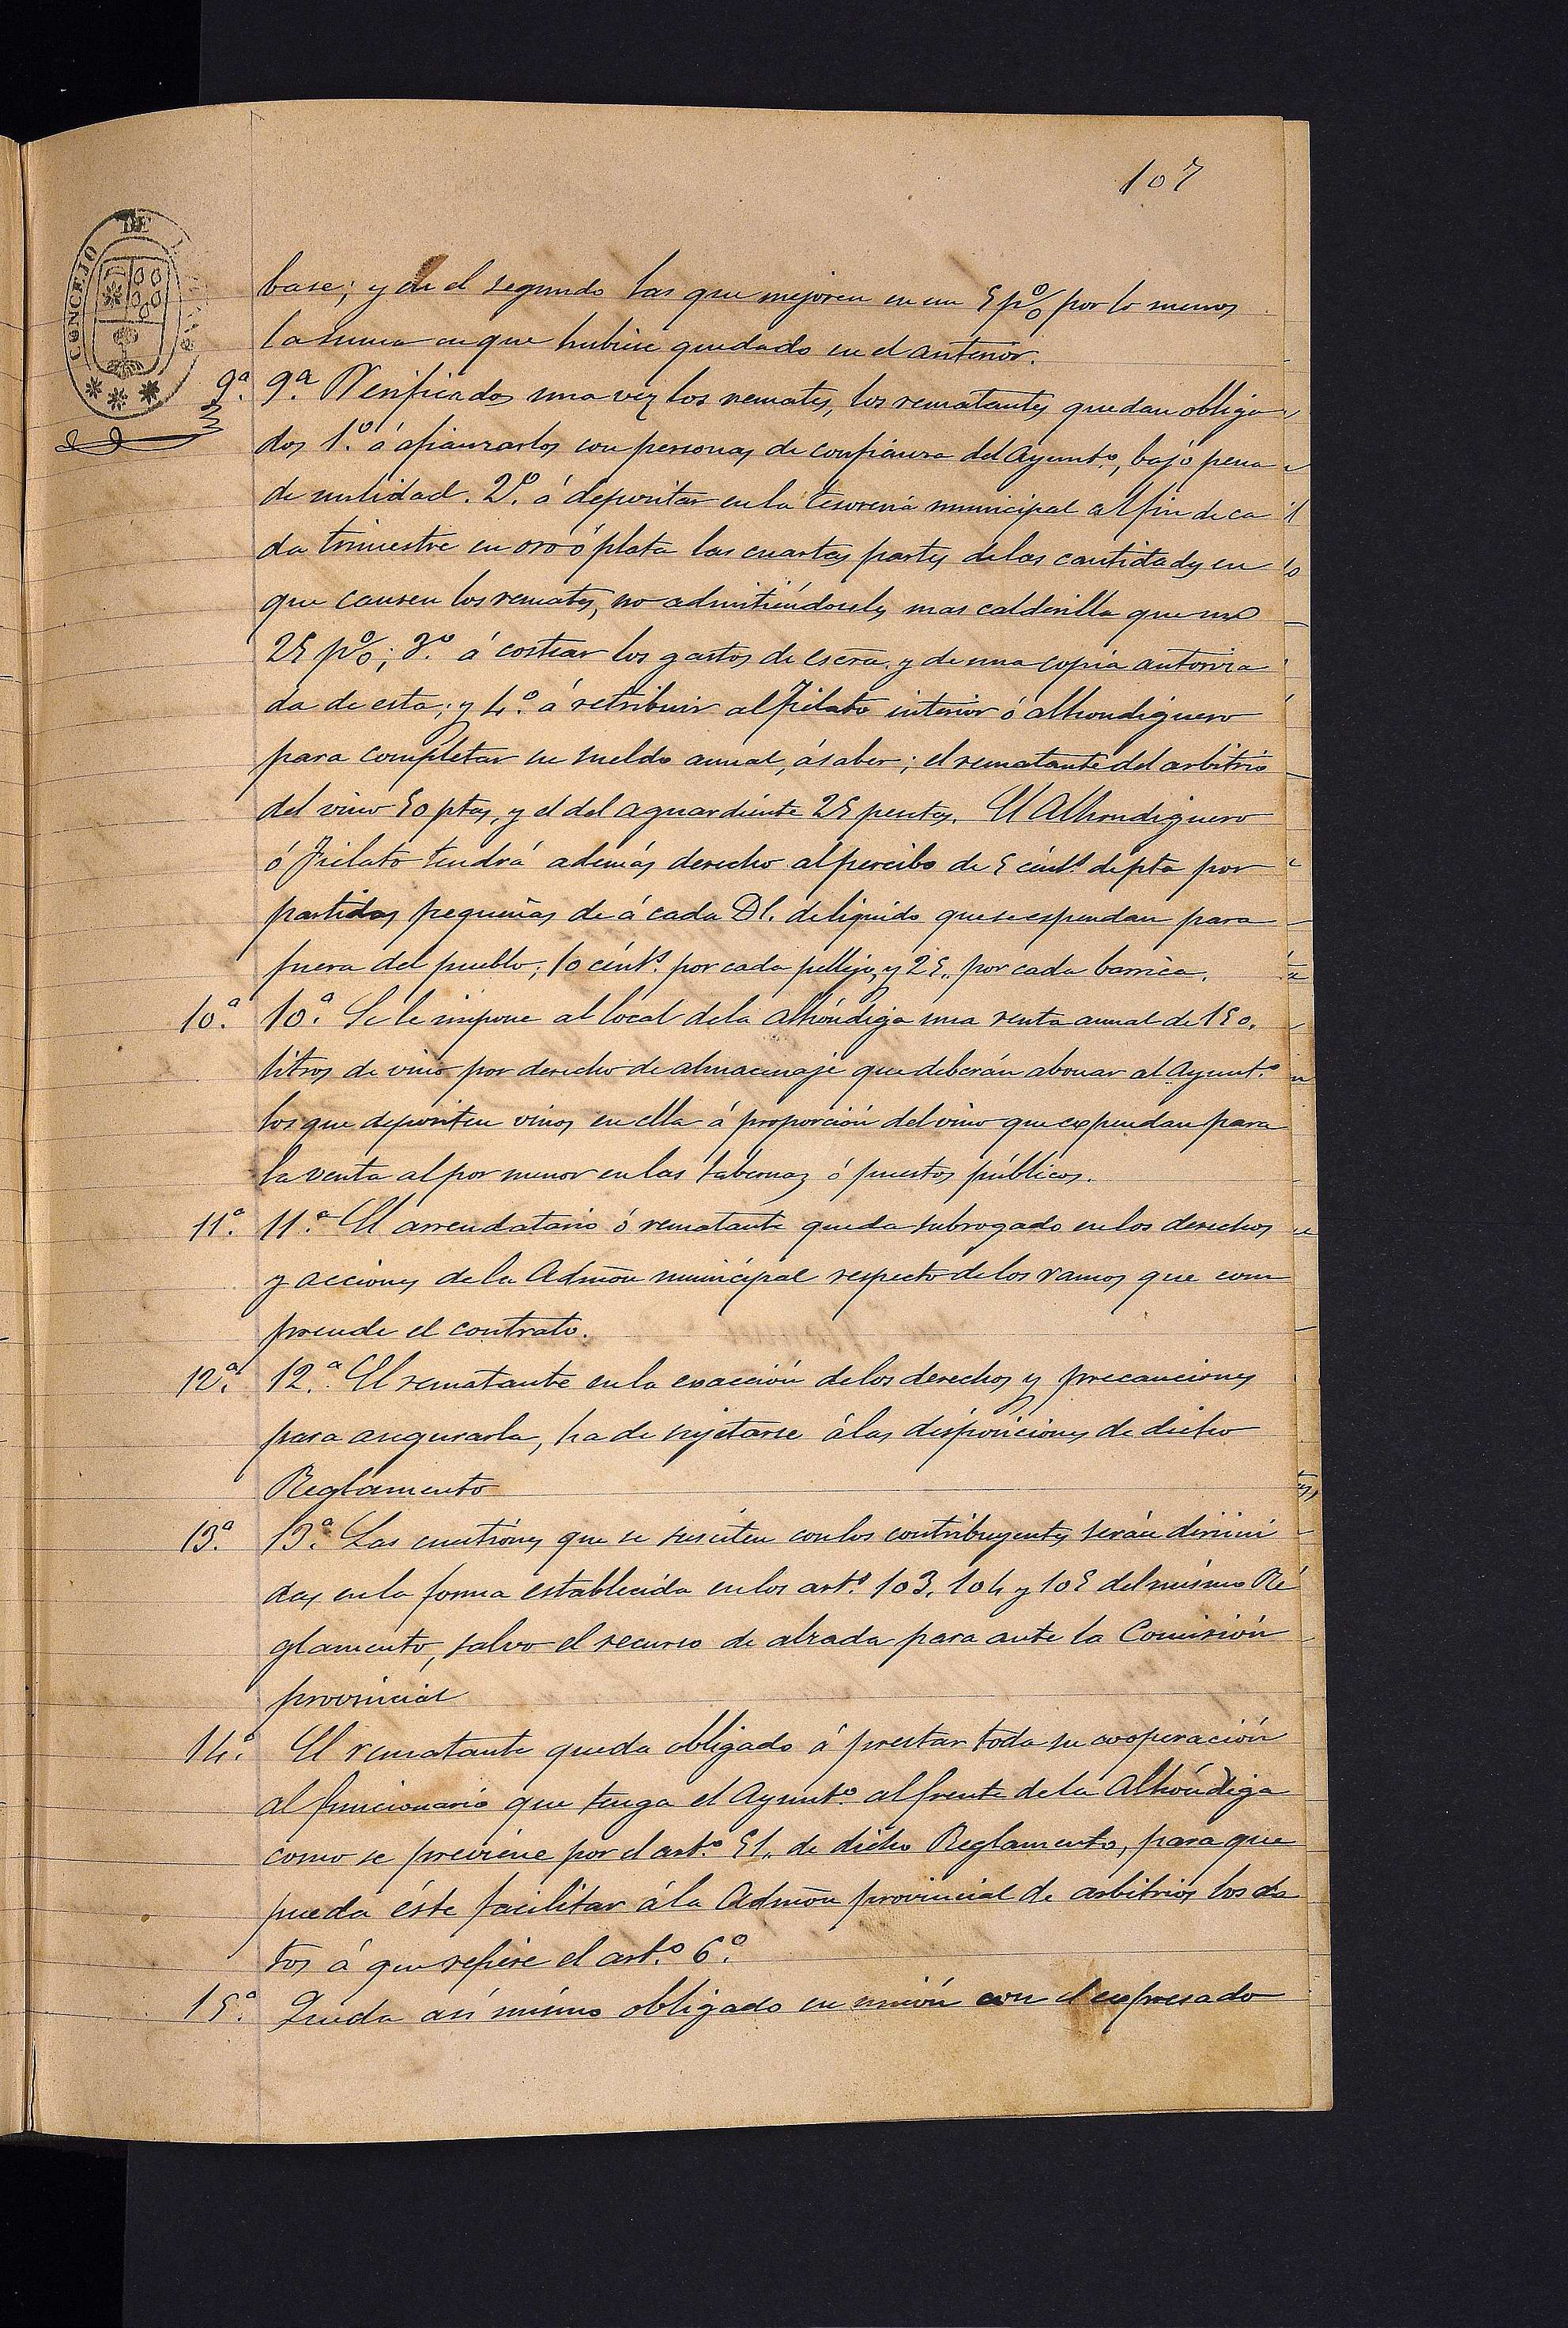 107
CONCEJO DE
base; y en el segundo las que mejoren en un 5 p% por lo menos
la suma en que hubiese quedado en el anterior.
9ª. 9ª. Verificados una vez los remates, los rematantes quedan obliga
dos 1.º á afianzarlos con personas de confianza del Ayunt.º, bajo pena
de nulidad. 2.º á depositar en la tesorería municipal al fin de ca
da trimestre en oro ó plata las cuartas partes de las cantidades en
que causen los remates, no admitiéndoseles mas calderilla que un
25 p%; 3.º á costear los gastos de escra. y de una copia autoriza
da de esta; y 4.º á retribuir al fielato interior ó alhondiguero
para completar su sueldo anual, á saber; el rematante del arbitrio
del vino 50 ptas, y el del aguardiente 25 pesetas. El Alhondiguero
ó Fielato tendrá además derecho al percibo de 5 cént.s de pta por
partidas pequeñas de á cada Dl. de líquido que se espendan para
fuera del pueblo; 10 cént.s por cada pellejo, y 25,, por cada barrica.
10.ª 10.ª Se le impone al local de la Alhóndiga una renta anual de 150.
litros de vino por derecho de almacenaje que deberán abonar al Ayunt.º
los que depositen vinos en ella á proporción del vino que expendan para
la venta al por menor en las tabernas ó puestos públicos.
11.ª 11.ª El arrendatario ó rematante queda subrogado en los derechos
y acciones de la Admōn municipal respecto de los ramos que com
prende el contrato.
12.ª 12.ª El rematante en la exacción de los derechos y precauciones
para asegurarla, ha de sujetarse á las disposiciones de dicho
Reglamento
13.ª 13.ª Las cuestiones que se susciten con los contribuyentes serán dirimi
das en la forma establecida en los art.s 103, 104 y 105 del mismo Re
glamento, salvo el recurso de alzada para ante la Comisión
provincial
14.ª El rematante queda obligado á prestar toda su cooperación
al funcionario que tenga el Ayunt.º al frente de la Alhóndiga
como se previene por el art.º 51,, de dicho Reglamento, para que
pueda éste facilitar á la Admōn provincial de arbitrios los da
tos á que refiere el art.º 6.º
15.ª Queda así mismo obligado en unión con el expresado